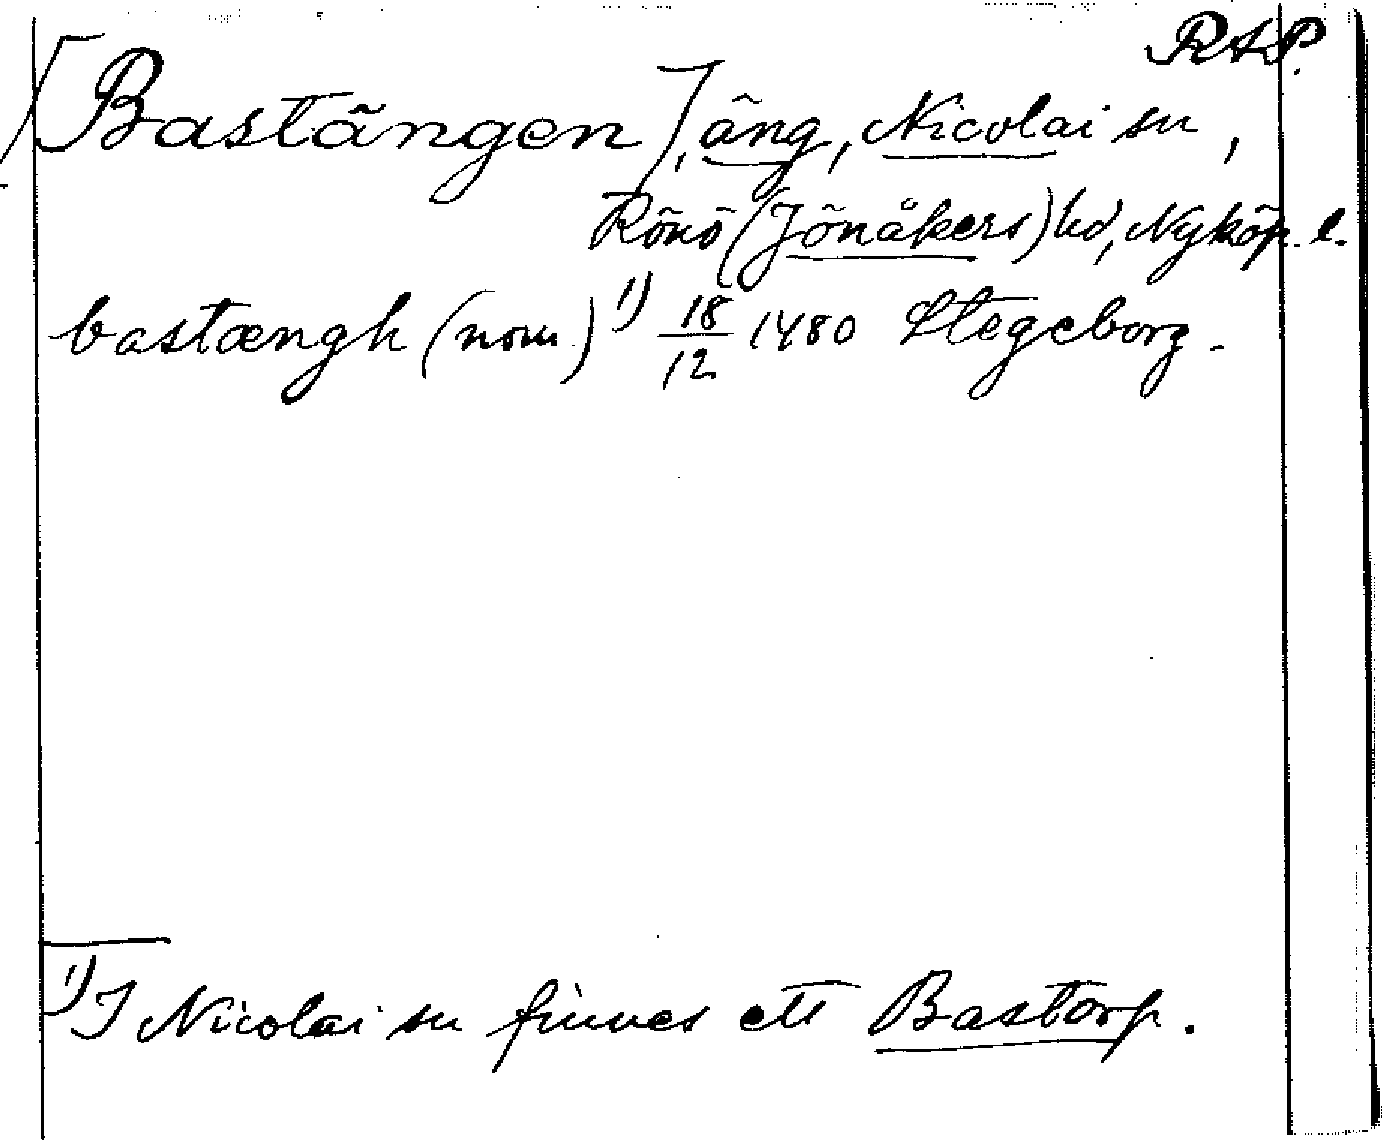 RAP.
[Bastängen], äng, Nicolai sn,
Rönö (Jönåkers) hd, Nyköp. l.
bastængh (nom) 1) 18/12 1480 Stegeborg.
1) I Nicolai sn finnes ett Bastorp.